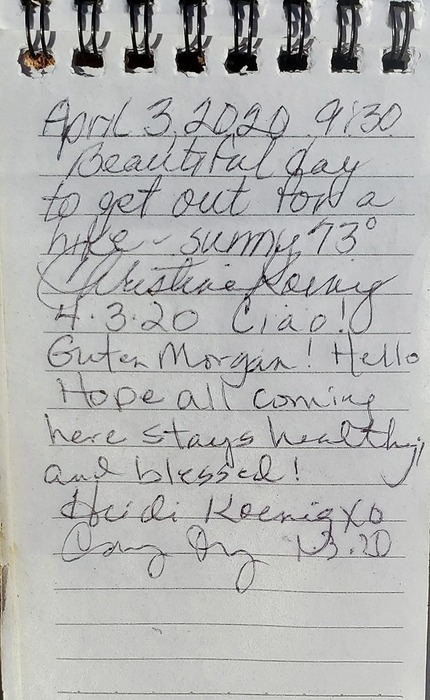 April 3, 2020 9:30
Beautiful day
to get out for a
hike - sunny 73°
Christine Koenig
4.3.20 Ciao!
Guten Morgan! Hello
Hope all coming
here stays healthy
and blessed!
Heidi Koenig XO